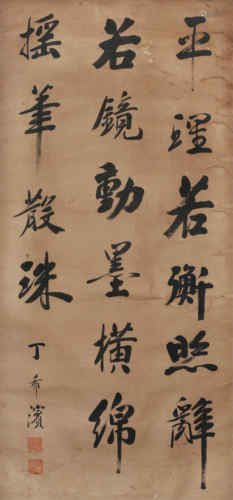 平理若衡照辭
若鏡動墨橫綿
摇筆散珠
丁希濱